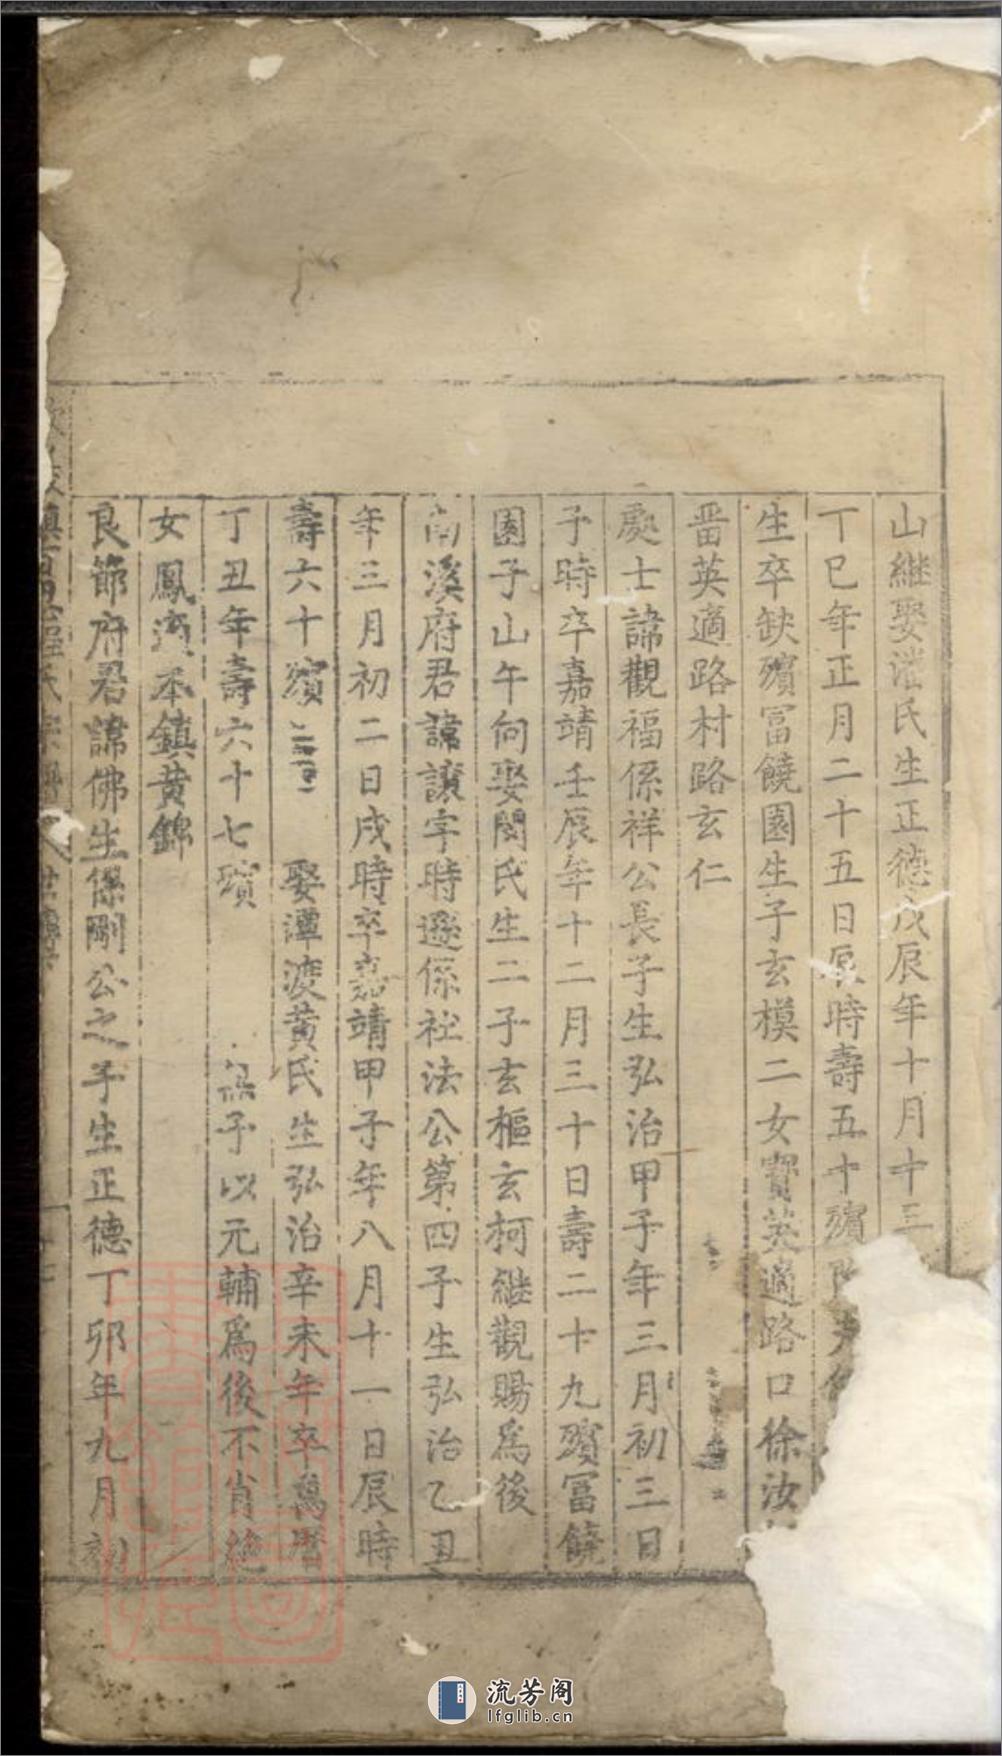 山継娶潅氏生正德戊辰年十月十三
丁巳年正月二十五日辰時壽五十殯
生卒缺殯冨饒園生子玄模二女寳英適路口徐汝
畨英適路村路玄仁
處士諱觀福係祥公長子生弘治甲子年三月初三日
子時卒嘉靖壬辰年十二月三十日壽二十九殯冨饒
園子山午向娶閔氏生二子玄樞玄柯継觀賜爲後
南溪府君諱讓字時遜係社法公第四子生弘治乙丑
年三月初二日戌時卒嘉靖甲子年八月十一日辰時
壽六十殯 娶潭渡黄氏生弘治辛未年卒萬曆
丁丑年壽六十七殯 子以元輔爲後不肖絶
女鳳適本鎮黄錦
良節府君諱佛生係剛公之子生正德丁卯年九月初
流芳阁
lfglib.cn